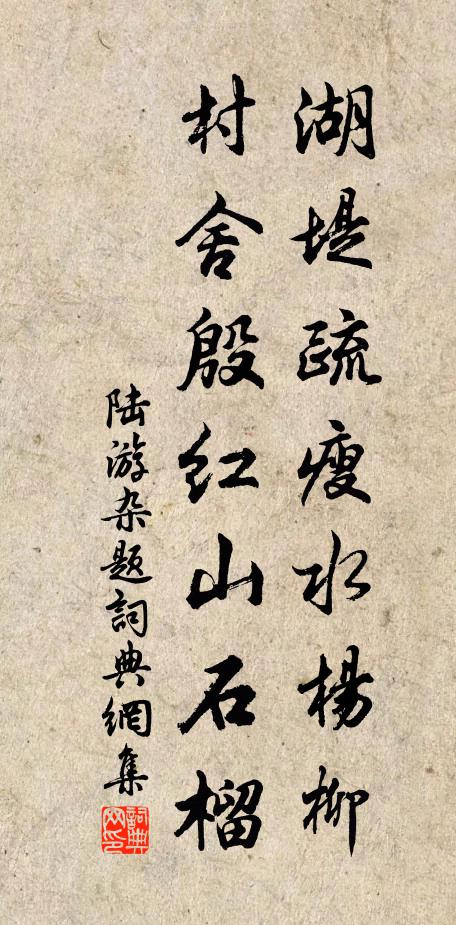 湖堤疏瘦水楊柳
村舍殷红山石榴
陆游杂题詞典網集
詞典网印